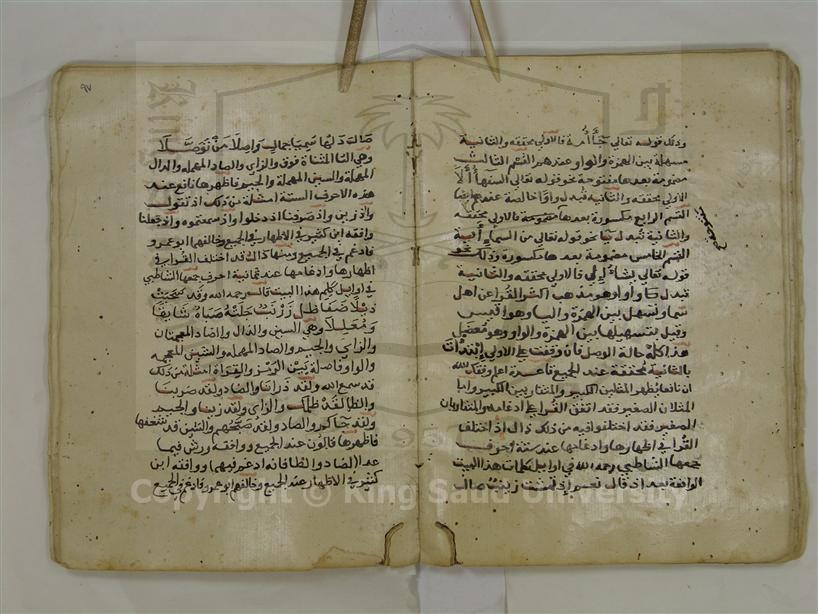 وذلك قوله تعالى جآء أمة فالاولى محققه والثانية
مسهلة بين الهمزة والواو عندهم القسم الثالث
مضمومة بعدها مفتوحة نحو قوله تعالى السفهآء ألا
الاولى محققه والثانية تبدل واوا خالصة عندهم ايضا
القسم الرابع مكسورة بعدها مفتوحة فالاولى محققه
والثانية تبدل ياء نحو قوله تعالى من السماء أية
القسم الخامس مضمومة بعدها مكسورة وذلك نحو
قوله تعالى يشآء إلى فالاولى محققة والثانية
تبدل واوا وهو مذهب اكثر القراء عن اهل
سما وتسهل بين الهمزة والياء وهو اقيس
وقيل تسهيلها بين الهمزة والواو وهو معضل
هذا كله حالة الوصل فان وقفت على الاولى ابتدات
بالثانية محققة عند الجميع قاعدة اعلم وفقك الله
ان نافعا يظهر المثلين الكبير والمتقاربين الكبير واما
المثلان الصغير فقد اتفق القراء على ادغامه والمتقاربان
الصغير فقد اختلفوا فيه من ذلك ذال إذ اختلف
القراء في اظهارها وادغامها عند ستة أحرف
جمعها الشاطبي رحمه الله في اوايل كلمات هذا البيت
الواقعة بعد اذ قال نعم إذ تمشت زينب صال
٩٧
صال دلها سمي جمال واصلا من توصلا
وهي التا المثناة فوق والزاي والصاد المهملة والدال
المهملة والسين المهملة والجيم فاظهرها نافع عند
هذه الاحرف الستة امثلة من ذلك اذ تقول
واذ زين واذ صرفنا اذ دخلوا واذ سمعتموه واذ جعلنا
وافقه ابن كثير في الاظهار في الجميع وخالفهم ابو عمرو
فادغم في الجميع ومنها دال قد اختلف القراء في
اظهارها وادغامها عند ثمانية احرف جمعها الشاطبي
في اوايل كلم هذا البيت قال رحمه الله وقد سحبت
ذيلا ضفا ظل زرنب جلته صباه شايقا
ومعللا وهي السين والذال والضاد المعجمتان
والزاي والجيم والصاد المهملة والشين المعجمة
والواو فاصلة بين الرمز والقراءة امثلة من ذلك
قد سمع الله ولقد ذرانا والضاد ولقد ضربنا
والظا لقد ظلمك والزاي ولقد زينا والجيم
ولقد جاكم والصاد ولقد صبحهم والشين قد شغفها
فاظهرها قالون عند الجميع ووافقه ورش فيما
عدا الضاد والظا فانه ادغم فيهما ووافقه ابن
كثير في الاظهار عند الجميع وخالفهم ابو عمرو فادغم في الجميع
Copyright © King Saud University